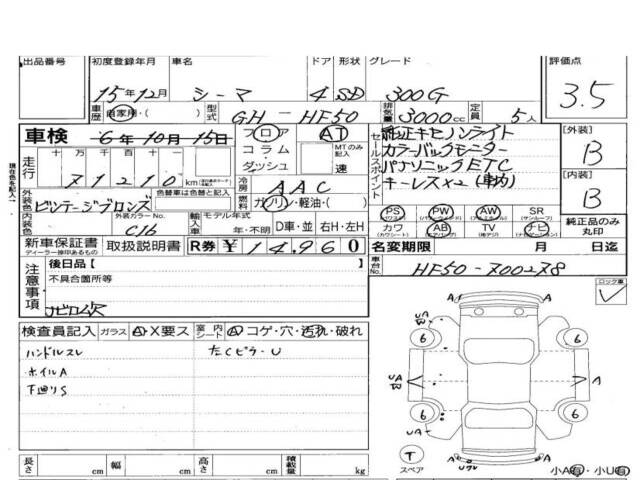 出品番号 初度登録年月 車名 ドア 形状 グレード 評価点
15年12月 シーマ 4 SD 300G 3.5
車歴 自家用・( ) 型式 GH-HF50 排気量 3000cc 定員 5人
車検 6年10月15日 フロア AT
コラム MTのみ記入
ダッシュ 速
走行 十 万 千 百 十 一
71210 km
冷房 AAC
燃料 ガソリン・軽油・( )
セールスポイント
純正キセノンライト
カラーバックモニター
パナソニックETC
キーレス×2 (車内)
[外装]
B
[内装]
B
現在色を記入
外装色 ビンテージブロンズ
色替車は色替前の色
内装色 外装カラーNo. C16
輸入車 モデル年式 年・不明 D車・並 右H・左H
PS PW AW SR
(パワーウィンドウ) (サンルーフ)
カワ AB TV ナビ
(カワシート) (エアバッグ) (ナビゲーション)
純正品のみ丸印
新車保証書 取扱説明書 R券 ¥14,960
ディーラー捺印あるもの
名変期限 月 日迄
車台No. HF50-700278
注意事項
後日品〔 〕
不具合箇所等
ナビロム欠
ロック車
検査員記入 ガラス A・X要ス 室内シート A コゲ・穴・汚れ・破れ
ハンドルスレ たCピラ-U
ホイルA
下廻りS
A A
UA
6 6
A
6 6
UA
T
スペア
小A有・小U有
長さ cm 幅 cm 高さ cm 積載量 kg